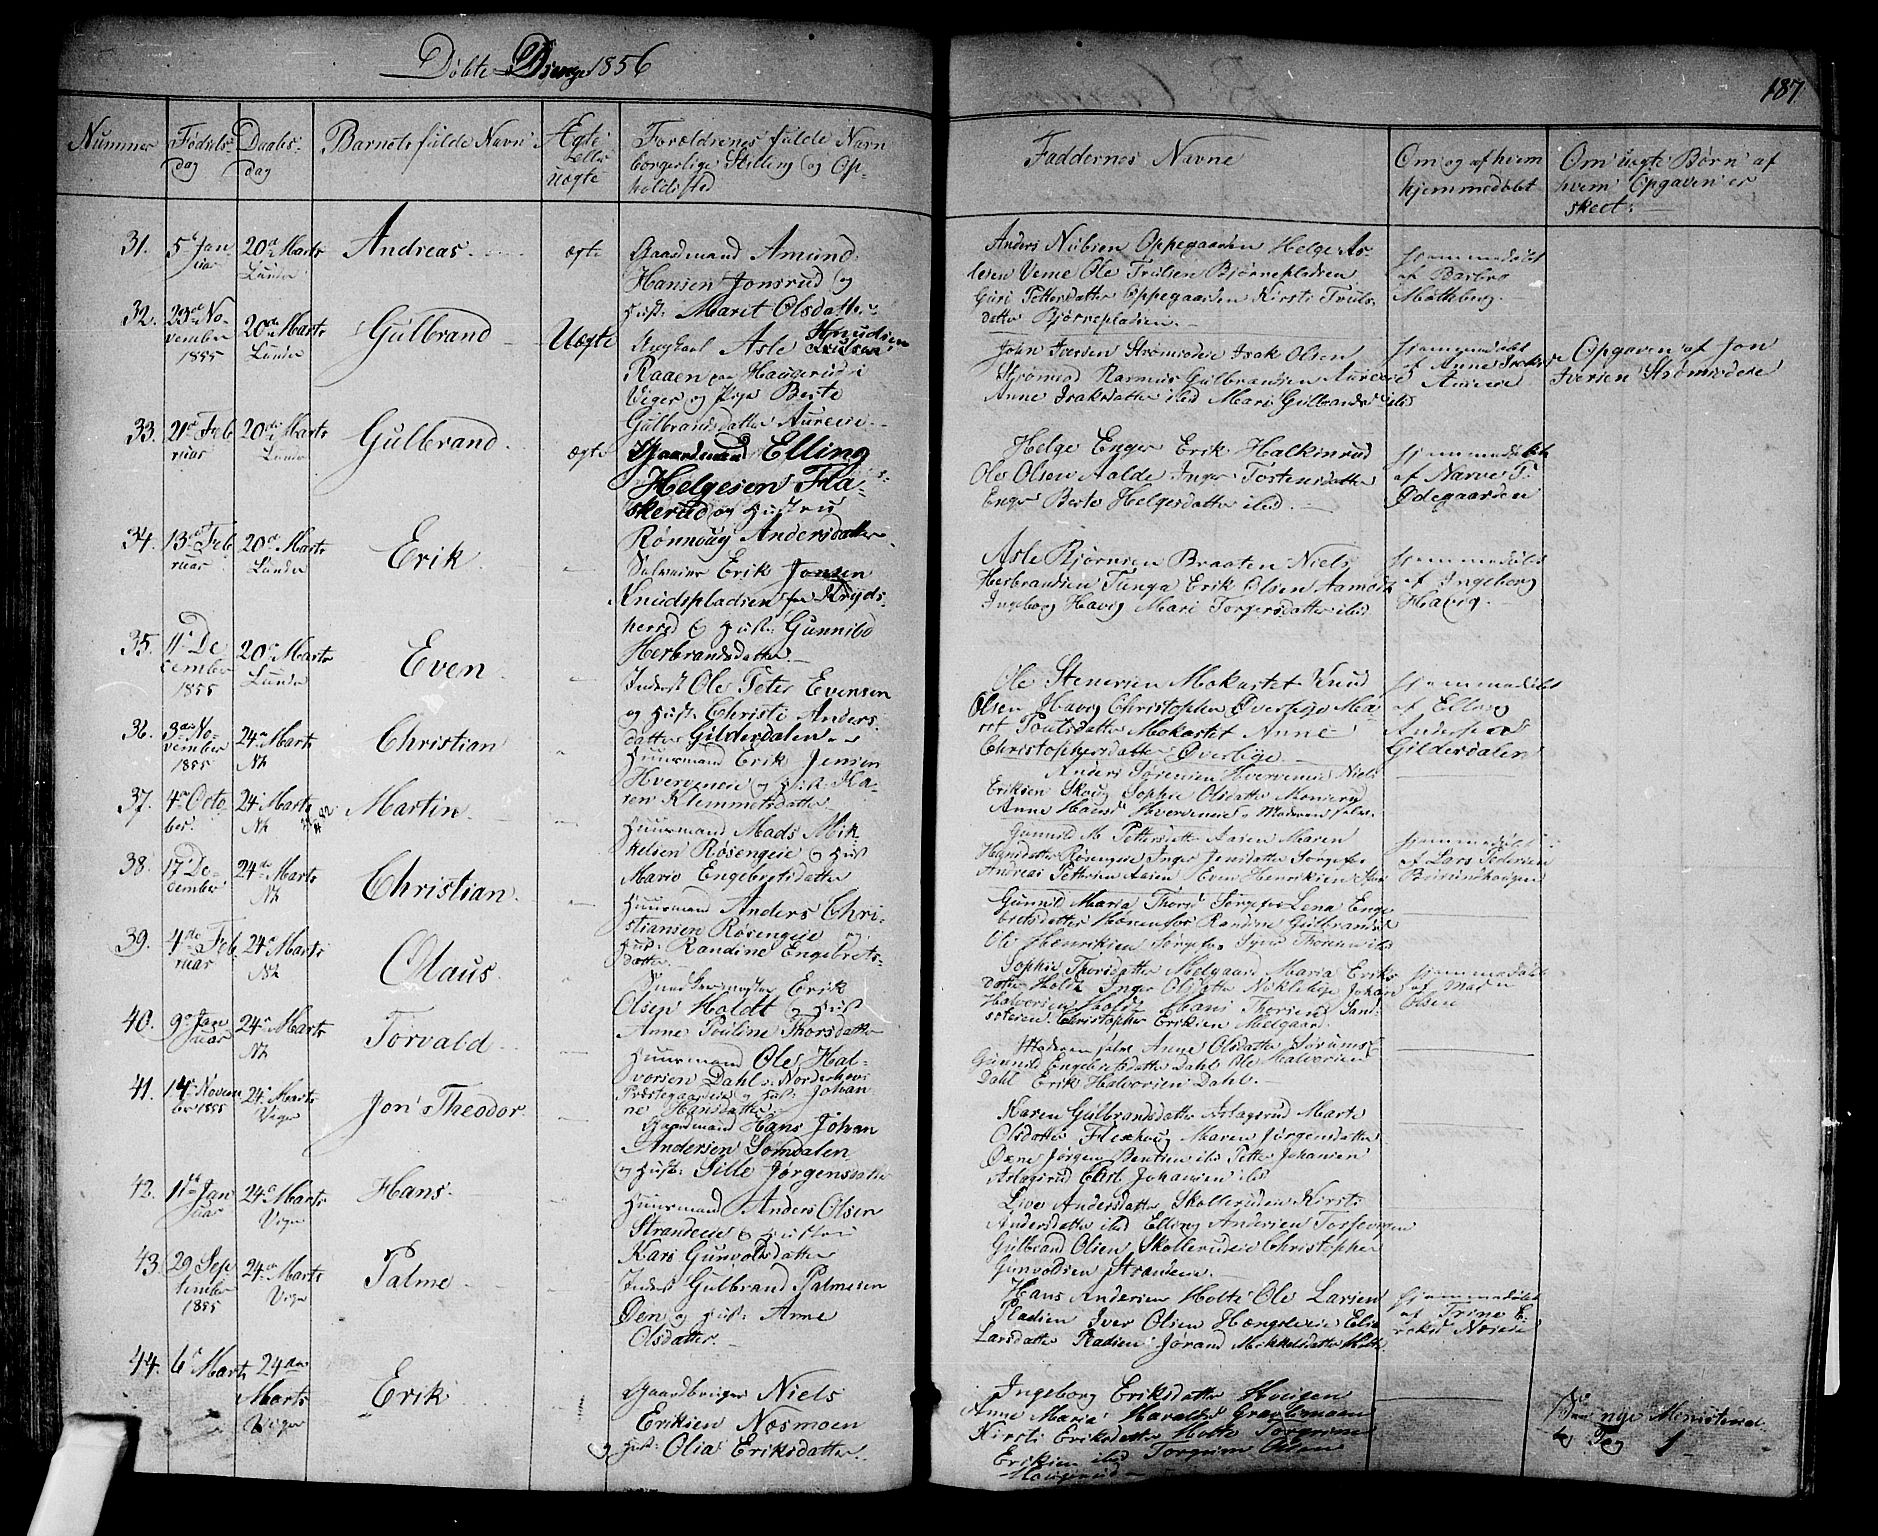 Döbte Drenge 1856
187
Nummer
Födsels-
dag
Daabs-
dag
Barnets fulde Navn
Ægte
eller
uægte
Forældrenes fulde Navn
borgerlige Stilling og Op-
holdssted
Faddernes Navne
Om og af hvem
hjemmedöbt
Om uægte Børn af
hvem Opgaven er
skeet.
31.
5te Jan
uar
20de Marts
Lunder
Andreas
ægte
Gaardmand Amund
Hansen Jonsrud og
Hust: Marit Olsdatter
Anders Nielsen Oppegaarden Helge As-
lesen Veme Ole Trulsen Bjørnepladsen
Guri Pettersdatter Oppegaarden Kirsti Truls-
datter Bjørnepladsen.
Hjemmedöbt
af Barbro
32.
23de No-
vember
1855
20de Marts
Lunder
Gulbrand
Uægte
Ungkarl Asle Knudsen
Raaen paa Haugerud i
Veger og Pige Berte
Gulbrandsdatter Aureeie.
John Iversen Strømsodeie Isak Olsen
Strømsod Rasmus Gulbrandsen Aureeie
Anne Isaksdatter ibid Mari Gulbrandsd ibid
Hjemmedöbt
af Anne Isaksd
Aureeie
Opgaven af Jon
Iversen Strømsodeie
33.
21de Feb
ruar
20de Marts
Lunder
Gulbrand
ægte
Gaardmand Elling
Helgesen Fla-
skerud og Hustru
Rønnoug Andersdatter
Helge Enger Erik Halkinrud
Ole Olsen Aalde Inger Tostensdatter
Enger Berte Helgesdatter ibid.
Hjemmedöbt
af Narve T.
Ødegaarden
34.
13de Feb
ruar
20de Marts
Lunder
Erik
Selveier Erik Jonsen
Knudspladsen fra Kryds-
herred og Hust: Gunnild
Herbrandsdatter.
Asle Bjørnsen Braaten Niels
Herbrandsen Tunga Erik Olsen Aamoth
Ingeborg Havig Mari Torgersdatter ibid
Hjemmedöbt
af Ingeborg
Havig.
35.
11te De
cember
1855
20de Marts
Lunder
Even
Inderst Ole Peter Evensen
og Hust: Christi Anders-
datter Gilderdalen
Ole Stenersen Mokastet Knud
Olsen Havig Christopher Øverlige Ma-
rit Poulsdatter Mokastet Anne
Christophersdatter Øverlige
Hjemmedöbt
af Elling
Andersen
Gilderdalen
36.
3die No-
vember
1855
24de Marts
Nh
Christian
Huusmand Erik Jensen
Hvervneeie og Hust Ka-
ren Klemmetsdatter
Anders Sørensen Hvervenmo Niels
Eriksen Skoug Sophie Olsdatter
Anne Hansd Hverveneie Moderen selv.
37.
4de Octo
ber
24de Marts
Nh
Martin
Huusmand Mads Mik
kelsen Røseneie og Hust
Marie Engebretsdatter
Gunnild M Pettersdatter Aasen Maren
Hansdatter Røseneie Inger Jensdatter Sorgefos
Andreas Pettersen Aasen Even Henriksen
Hjemmedöbt
af Lars Pedersen
38.
17de De-
cember
24de Marts
Nh
Christian
Huusmand Anders Chri-
stiansen Røseneie og
Hust: Randine Engebrets-
datter
Gunnild Maria Thorsd Sorgefos Lena Enge
bretsdatter Hønenfos Randine Gulbrandsd
Ole Henriksen Sorgefos Thoresen ibid
39.
4de Feb
ruar
24de Marts
Nh
Olaus
Erik
Olsen Holdt og Hust
Anne Pouline Thorsdatter
Sophie Thorsdatter Melgaard Maria Eriks
datter Holdt Inger Olsdatter Nikleby Johan
Halvorsen Holdt Hans Thorsen Sand-
steren Christopher Eriksen Melgaard.
Hjemmedöbt
af Maren
Olsen
40.
9de Jan
uar
24de Marts
Nh
Torvald
Huusmand Ole Hal-
vorsen Dahl Norderhovs
Præstegaardeie og Hust: Johan
ne Hansdatter
Moderen selv Anne Olsdatter
Gunild Engebretsdatter Dahl Ole Halvorsen
Dahl Erik Halvorsen Dahl.
41.
14de Novem
ber 1855
24de Marts
Viger
Jon Theodor
Gaardmand Hans Johan
Andersen Somdalen
og Hust: Sille Jørgensdatter
Karen Gulbrandsdatter Aslagsrud Marte
Olsdatter Flexhoug Maren Jørgensdatter
Oxne Jørgen Bentsen ibid Petter Johansen
Aslagsrud Johansen ibid
42.
11te Jan
uar
24de Marts
Viger
Hans
Huusmand Anders Olsen
Strandeeie og Hustru
Kari Gunvoldsdatter
Live Andersdatter Skollerudeie Kirsti
Andersdatter ibid Elling Andersen
Gulbrand Olsen Skollerudeie Christopher
Gunvoldsen Strandeeie.
43.
29 Sep
tember
1855
24de Marts
Viger
Palme
Inderst Gulbrand Palmesen
Den og Hust: Anne
Olsdatter.
Hans Andersen Holte Ole Larsen
Pladsen Iver Olsen Hængsleeie Elie
Larsdatter Pladsen Jørand Mikkelsdatter Holte
Hjemmedöbt
af Trine E-
riksd
44.
6te Marts
24de
Marts
Viger
Erik
Gaardbruger Niels
Eriksen Næsmoen
og Hust: Olia Eriksdatter.
Ingeborg Eriksdatter Hougen
Anne Maria Haralds
Kirsti Eriksdatter Holte Torgrim
Eriksen ibid Torgrim Olsen
Hougerud